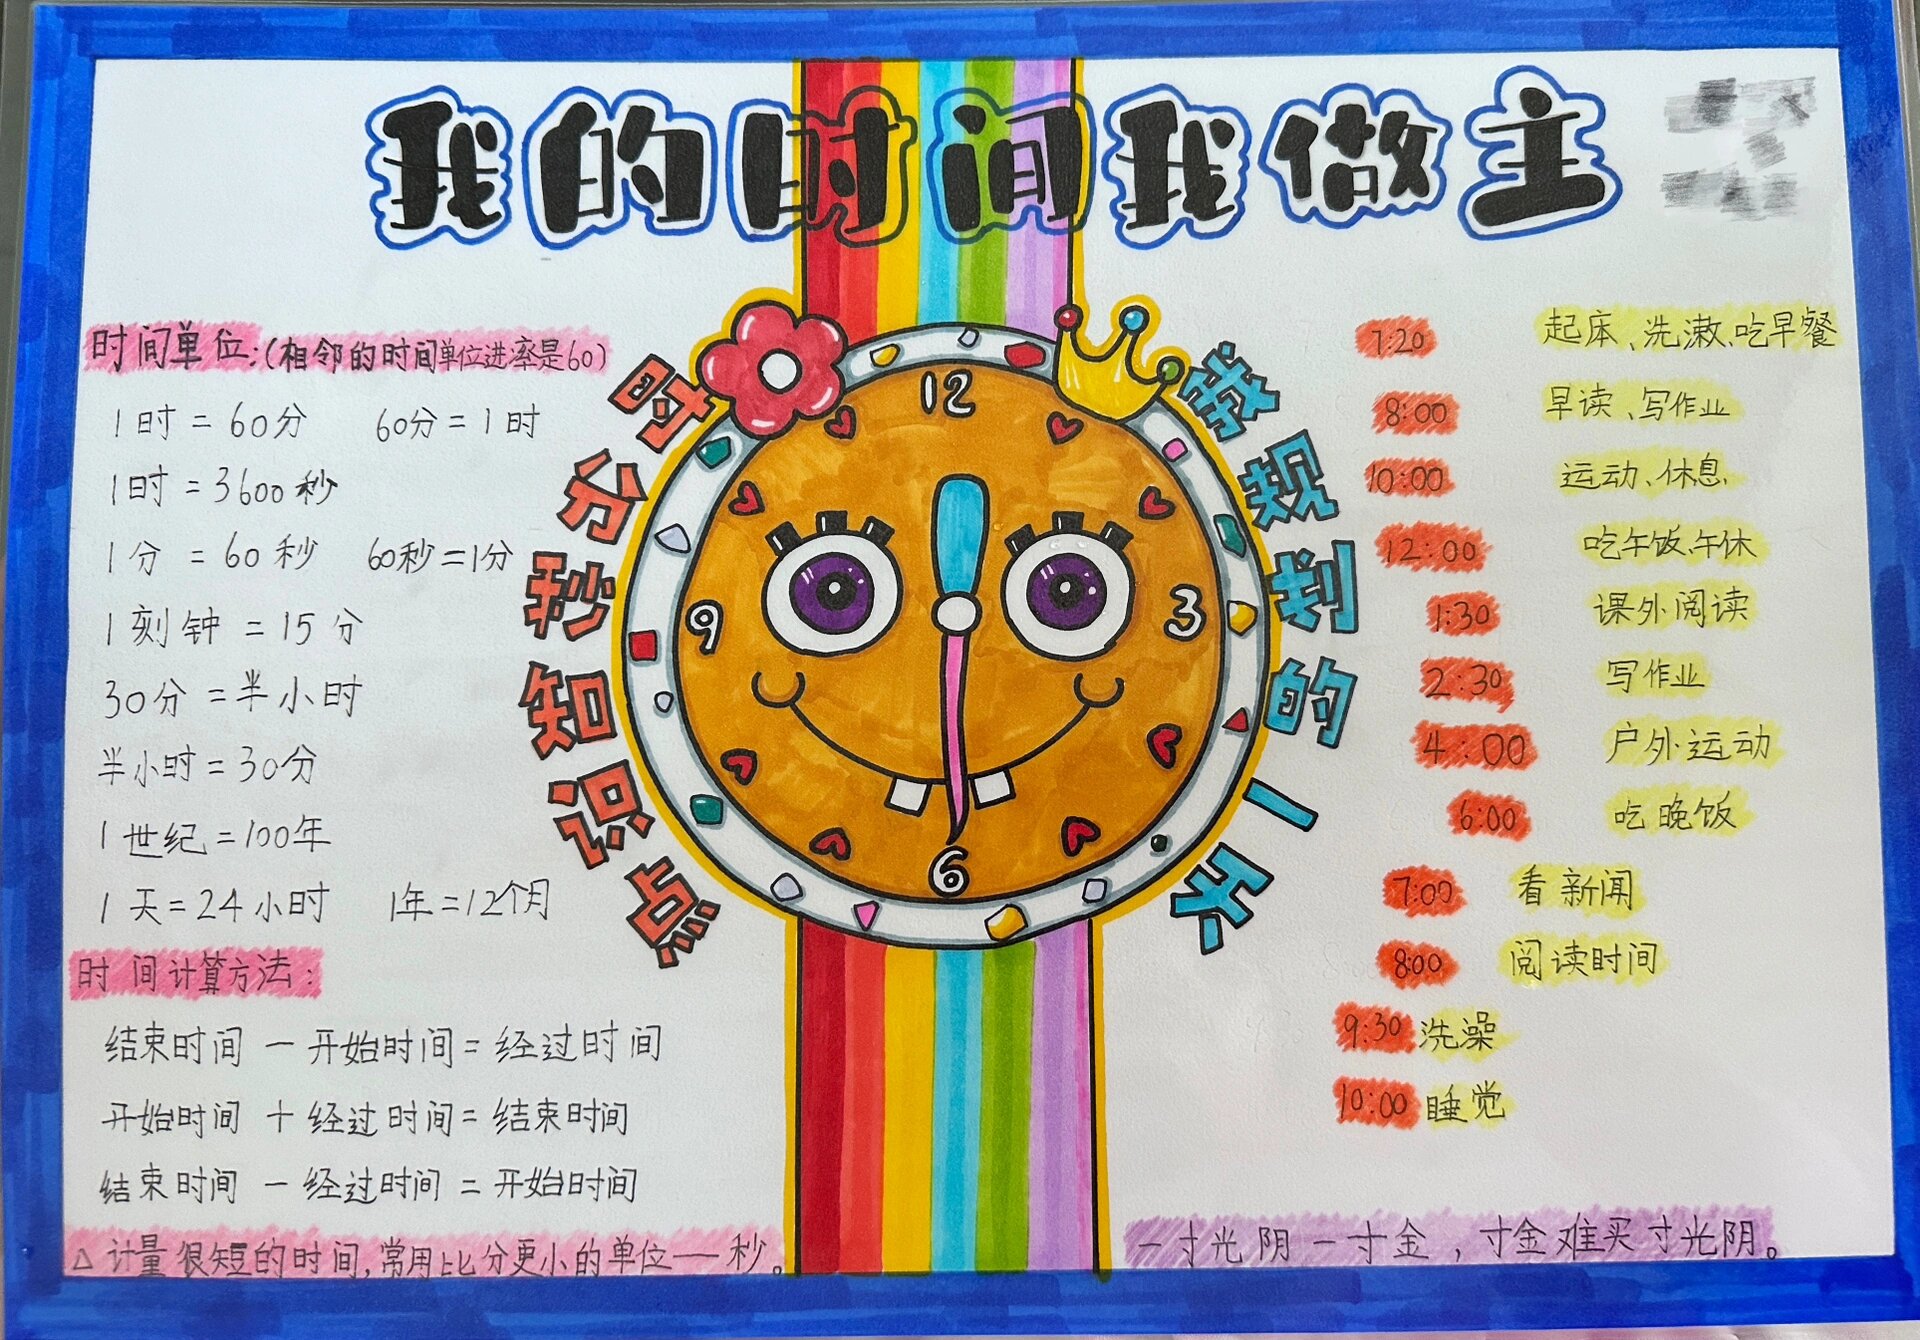 我的时间我做主
时间单位:(相邻的时间单位进率是60)
1时=60分 60分=1时
1时=3600秒
1分=60秒 60秒=1分
1刻钟=15分
30分=半小时
半小时=30分
1世纪=100年
1天=24小时 1年=12个月
时间计算方法:
结束时间-开始时间=经过时间
开始时间+经过时间=结束时间
结束时间-经过时间=开始时间
△计量很短的时间,常用比分更小的单位——秒。
时分秒知识点
12
3
6
9
我规划的一天
7:20 起床、洗漱、吃早餐
8:00 早读、写作业
10:00 运动、休息
12:00 吃午饭、午休
1:30 课外阅读
2:30 写作业
4:00 户外运动
6:00 吃晚饭
7:00 看新闻
8:00 阅读时间
9:30 洗澡
10:00 睡觉
一寸光阴一寸金,寸金难买寸光阴。